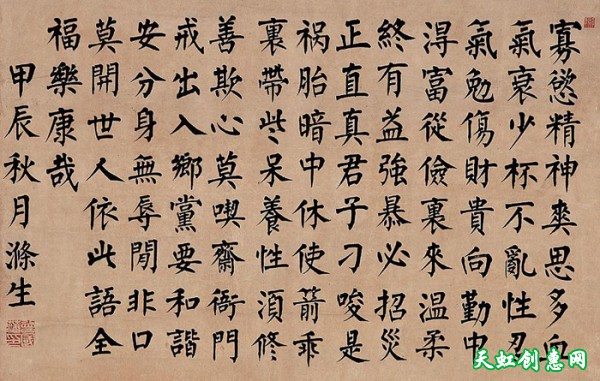 寡慾精神爽思多血
氣衰少杯不亂性忍
氣勉傷財貴向勤中
淂富從儉裏來温柔
終有益強暴必招災
正直真君子刁唆是
祸胎暗中休使箭乖
裏帶些呆養性須修
善欺心莫喫齋衙門
戒出入鄉黨要和諧
安分身無辱閒非口
莫開世人依此語全
福樂康哉
甲辰秋月滌生
天虹创惠网